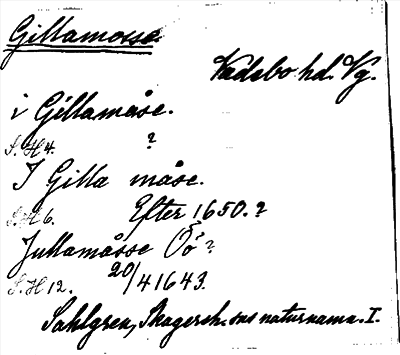 Gillamosse.
Vadsbo hd. Vg.
i Gillamåse.
S.H 4. ?
I Gilla måse.
S.H 6. Efter 1650.?
Jullamåsse Öö?
S.H 12. 20/4 1643.
Sahlgren, Skagersh. sns naturnamn. I.